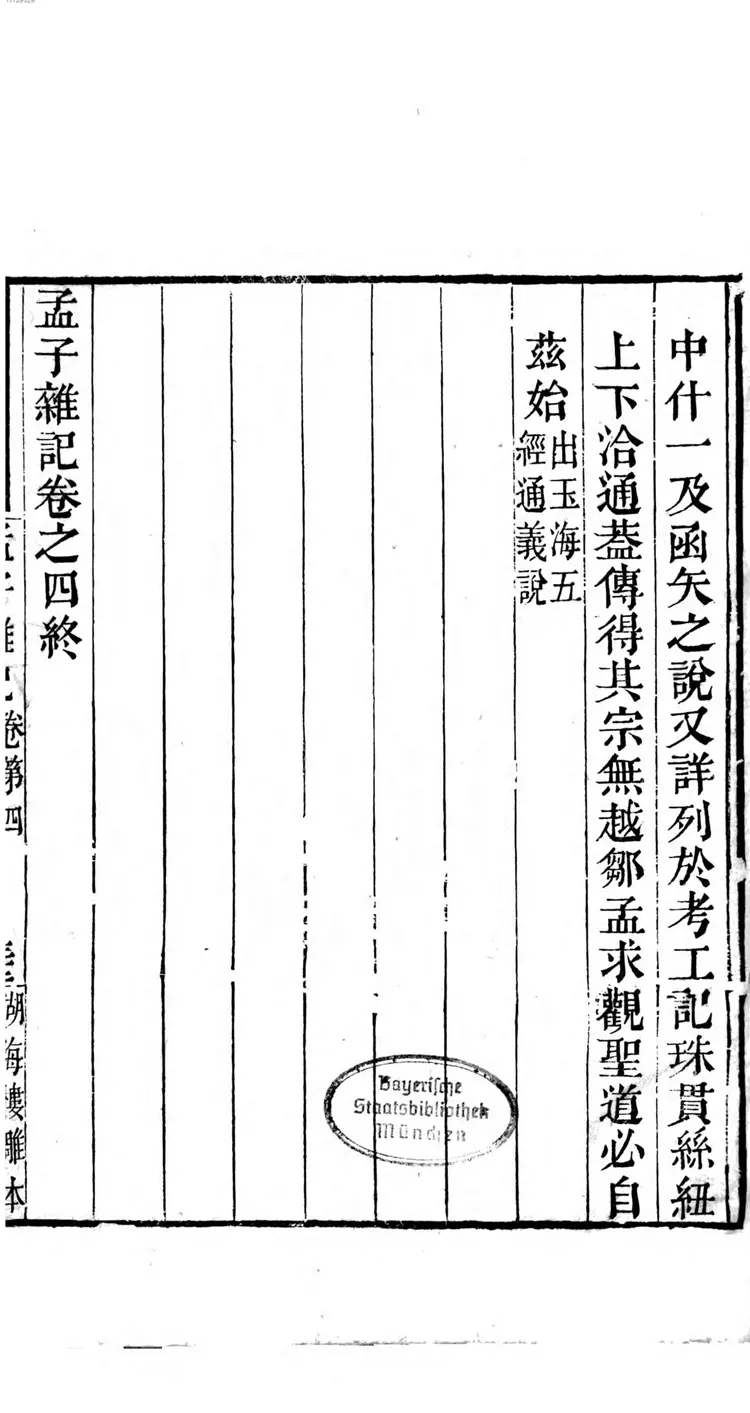 中什一及函矢之說又詳列於考工記珠貫絲紐
上下洽通葢傳得其宗無越鄒孟求觀聖道必自
茲始出玉海五
經通義說
孟子雜記卷之四終
孟子雜記卷第四
湖海樓雕本
Bayerische
Staatsbibliothek
München